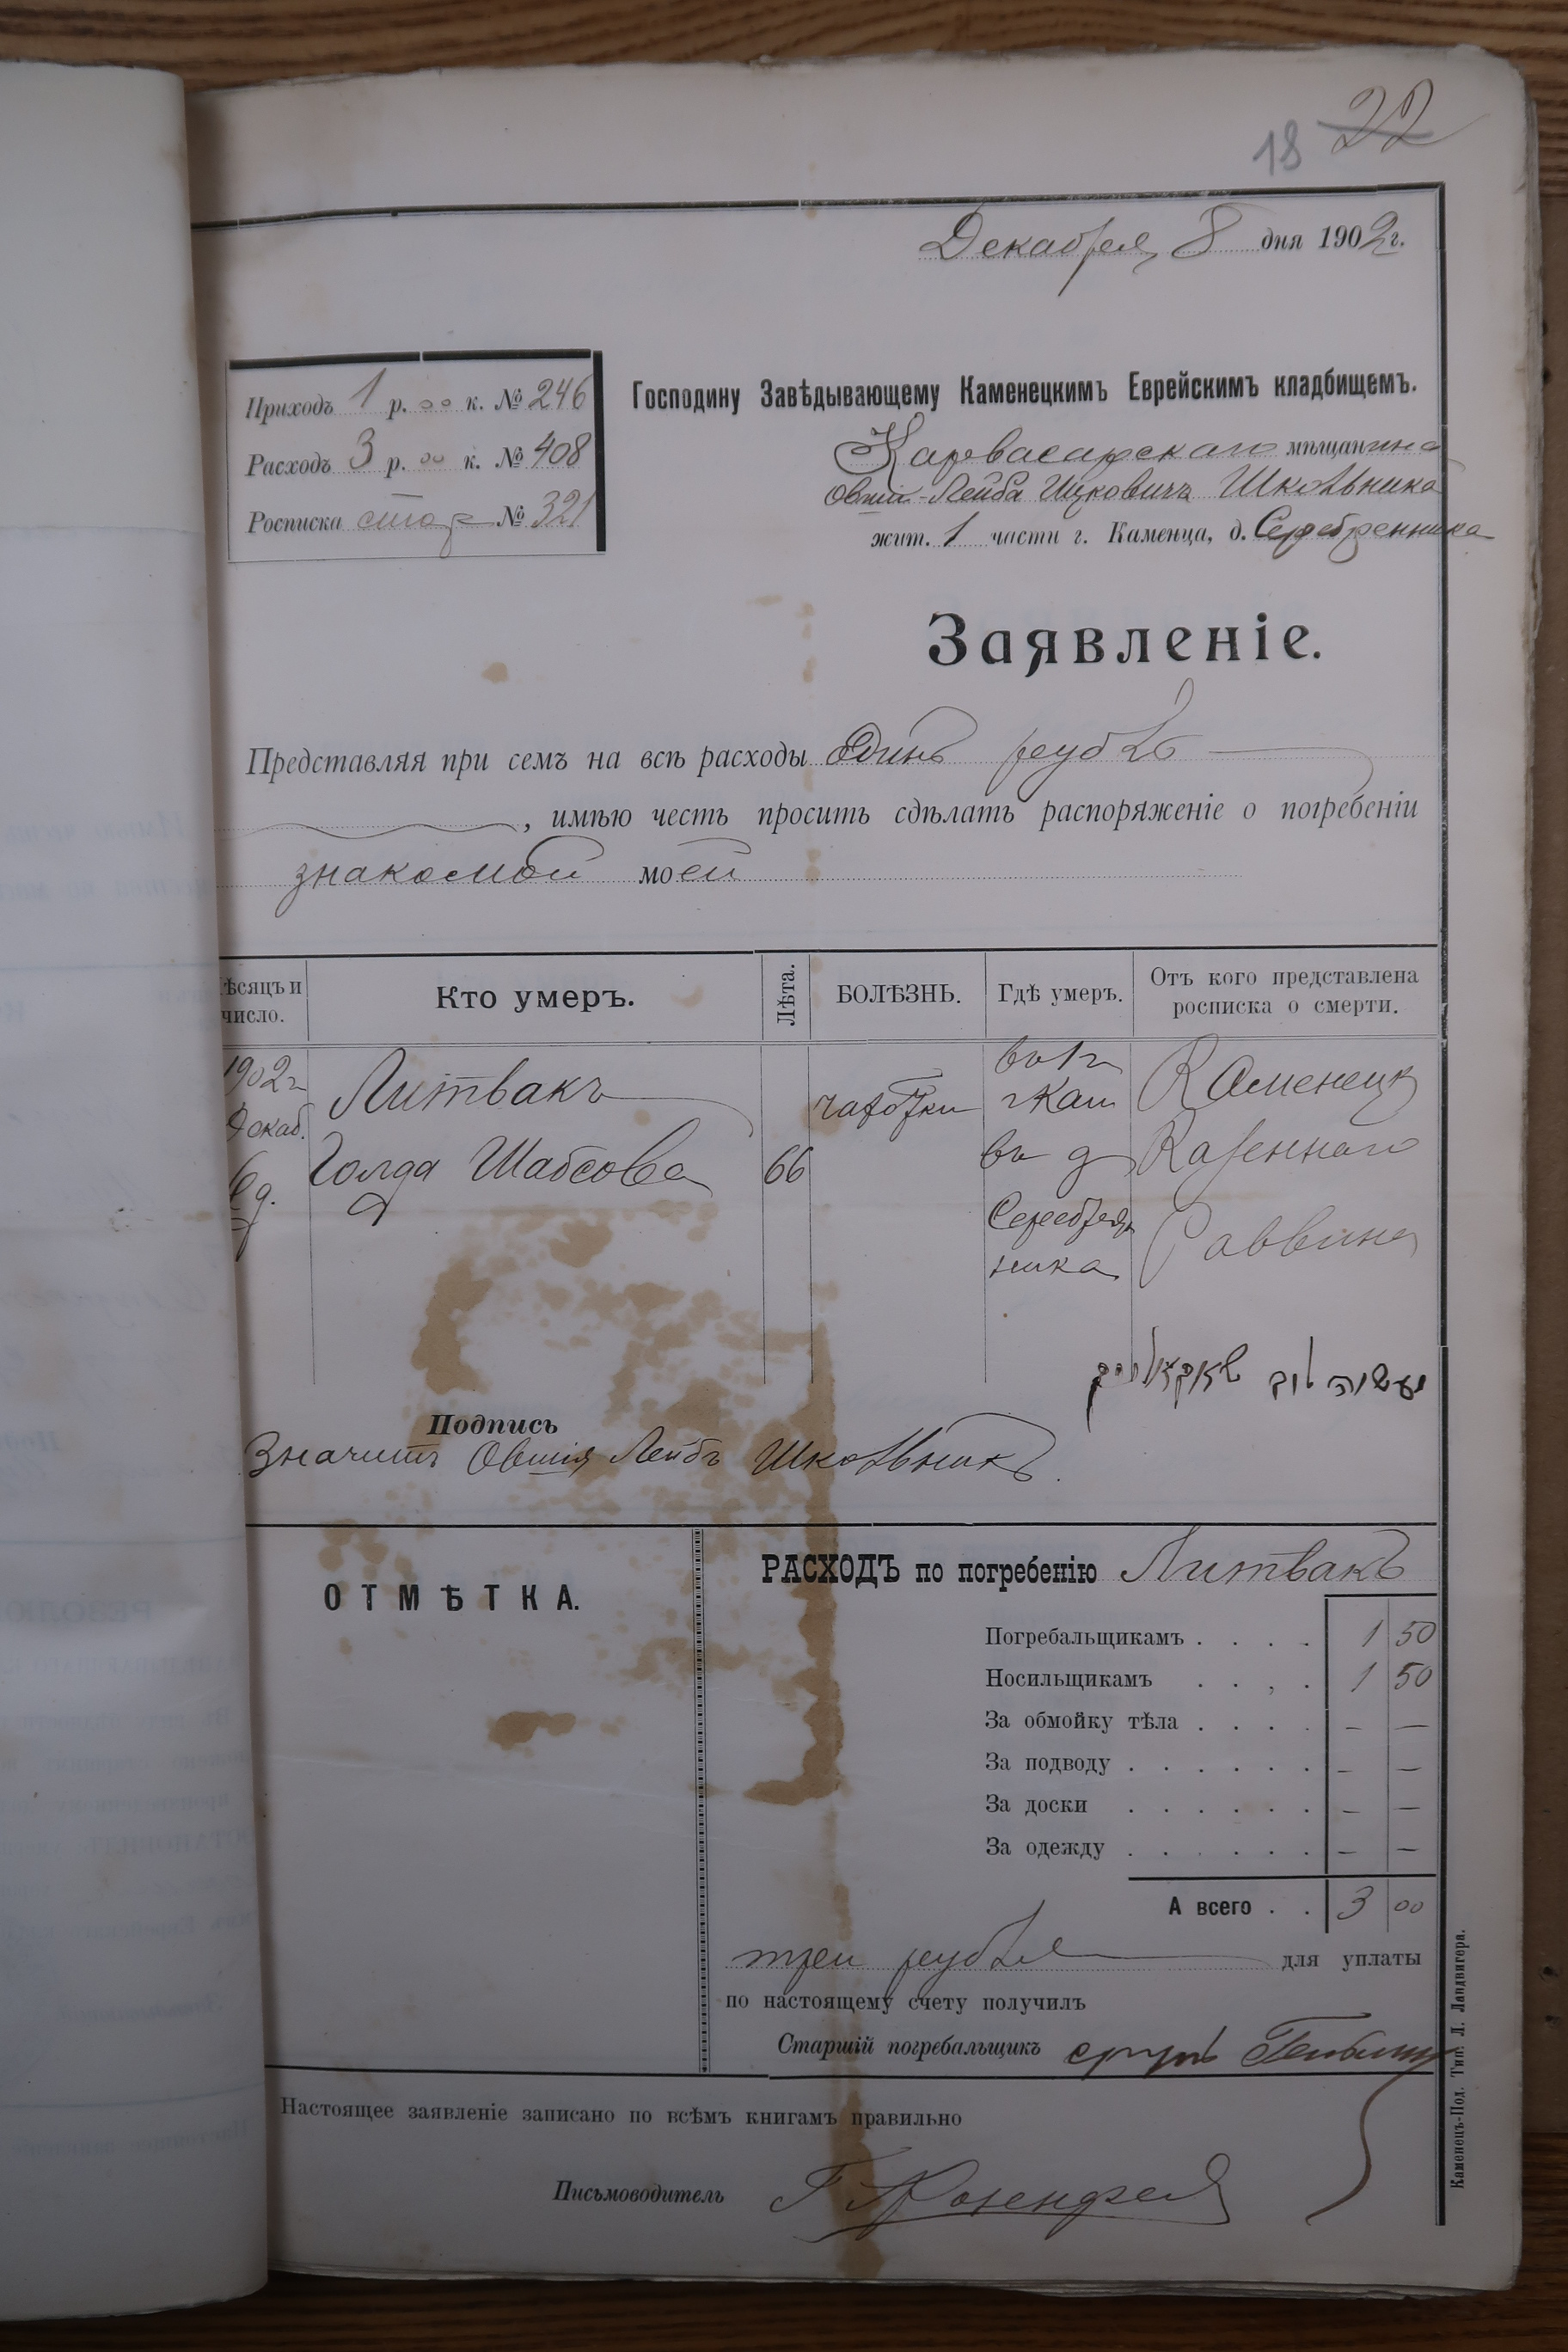 18 22
Декабря 8 дня 1902 г.
Приходъ 1 р. 00 к. № 246
Расходъ 3 р. 00 к. № 408
Росписка стар № 321
Господину Завѣдывающему Каменецкимъ Еврейскимъ кладбищемъ.
Карвасарскаго мѣщанина
Овшія-Лейба Ицковича Школьника
жит. 1 части г. Каменца, д. Серебренника
Заявленіе.
Представляя при семъ на всѣ расходы Одинъ рубль
, имѣю честь просить сдѣлать распоряженіе о погребеніи
знакомой моей
ѣсяцъ и число.
Кто умеръ.
Лѣта.
БОЛѢЗНЬ.
Гдѣ умеръ.
Отъ кого представлена росписка о смерти.
1902 г Литвакъ чахотки г Кам Каменецк
Декаб.
6 д. Голда Шабсова 66 въ д Казеннаго
Серебрен Раввина
ника
Подпись
Значитъ Овшія Лейбъ Школьникъ.
ОТМѢТКА.
РАСХОДЪ по погребенію Литвакъ
Погребальщикамъ . . . . 1 50
Носильщикамъ . . , . 1 50
За обмойку тѣла . . . . – —
За подводу . . . . . . – —
За доски . . . . . . – —
За одежду . . . . . . – —
А всего . . 3 00
три рубля для уплаты
по настоящему счету получилъ
Старшій погребальщикъ
Настоящее заявленіе записано по всѣмъ книгамъ правильно
Письмоводитель Розенфел
Каменецъ-Под. Тип. Л. Ландвигера.